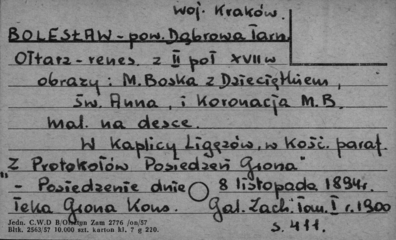 woj. Kraków.
BOLESŁAW - pow. Dąbrowa Tarn.
Ołtarz - renes. z II poł XVII w
obrazy: M. Boska z Dzieciątkiem,
Św. Anna, i Koronacja M.B.
mal. na desce.
W Kaplicy Ligęzów, w Kość. paraf.
"Z Protokołów Posiedzeń Grona"
- Posiedzenie dnia 8 listopada 1894r.
Teka Grona Kons. Gal. Zach. Tom. I r. 1900
s. 411.
Jedn. C.W.D B/Olsztyn Zam 2776 /on/57
Bltk. 2563/57 10.000 szt. karton kl. 7 g 210.